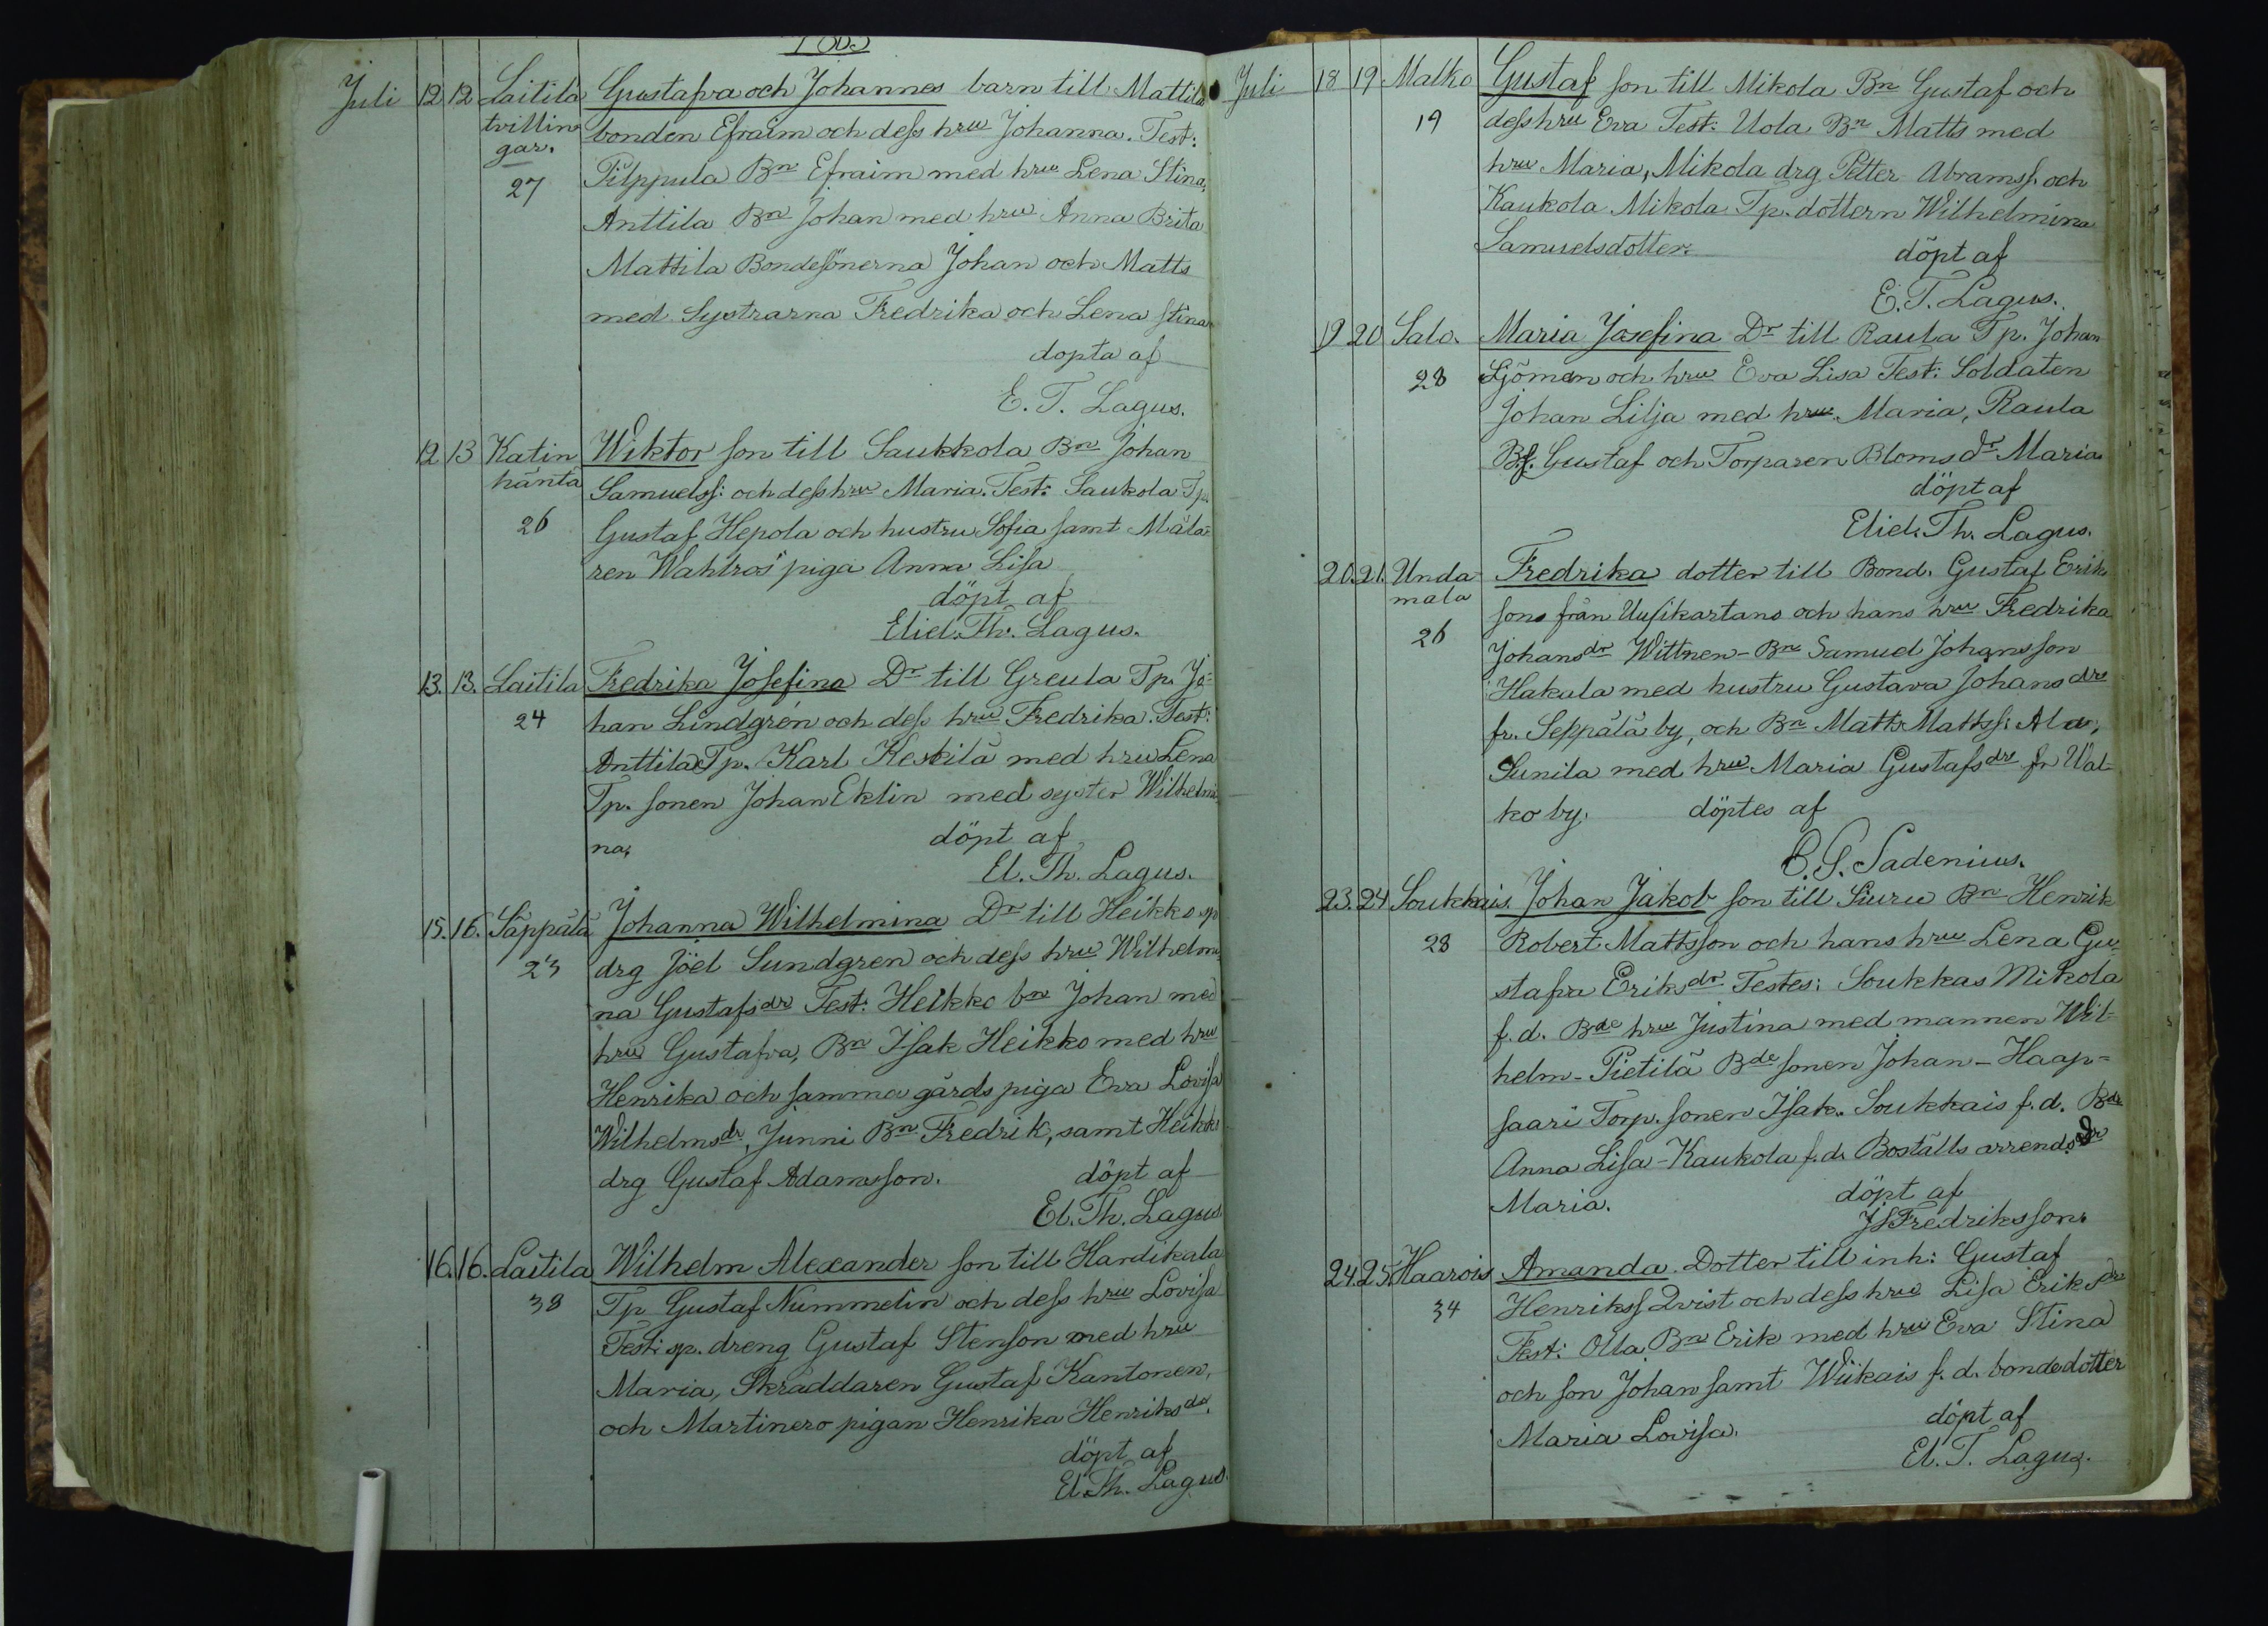 Juli 12 12 Laitila Gustafva och Johannes barn till Mattila
tvillin
gar. bonden Efraim och dess hru Johanna. Test:
27 Pilppula Bn Efraim med hru Lena Stina,
Anttila Bn Johan med hru Anna Brita
Mattila Bondesönerna Johan och Matts
med Systrarna Fredrika och Lena Stina
döpta af
E. T. Lagus.
12 13 Katin Wiktor son till Saukkola Bn Johan
häntä Samuelss: och dess hru Maria. Test: Saukola Tp.
26 Gustaf Hepola och hustru Sofia samt Måla-
ren Wahlros' piga Anna Lisa
döpt af
Eliel. Th. Lagus.
13. 13. Laitila Fredrika Josefina Dr till Greula Tp. Jo-
24 han Lindgrén och dess hru Fredrika. Test:
Anttila Tp. Karl Keskilä med hru Lena
Tp. sonen Johan Eklin med syster Wilhelmi
na. döpt af
El. Th. Lagus.
15. 16. Säppälä Johanna Wilhelmina Dr till Heikko sp
23 drg Joel Sundgren och dess hru Wilhelmi
na Gustafsdr Test: Heikko bn Johan med
hru Gustafva, Bn Isak Heikko med hru
Henrika och samma gårds piga Eva Lovisa
Wilhelmsdr, Junni Bn Fredrik, samt Heikko
drg Gustaf Adamsson. döpt af
El. Th. Lagus
16. 16. Laitila Wilhelm Alexander son till Hardikala
38 Tp Gustaf Nummelin och dess hru Lovisa
Test: sp. dreng Gustaf Stenson med hru
Maria, Skräddaren Gustaf Kantonen,
och Martinero pigan Henrika Henriksdr.
döpt af
El. Th. Lagus.
Juli 18 19 Malko Gustaf son till Mikola Bn Gustaf och
19 dess hru Eva Test: Uola Bn Matts med
hru Maria, Mikola drg Petter Abramss. och
Kaukola Mikola Tp. dottern Wilhelmina
Samuelsdotter. döpt af
E. T. Lagus.
19 20 Salo. Maria Josefina Dr till Raula Tp. Johan
28 Sjöman och hru Eva Lisa Test: Soldaten
Johan Lilja med hru Maria, Raula
Bs. Gustaf och Torparen Bloms dr Maria
döpt af
Eliel. Th. Lagus.
20. 21. Unda- Fredrika dotter till Bond. Gustaf Erik
mala sons från Uusikartano och hans hru Fredrika
26 Johansdr Wittnen - Bn Samuel Johansson
Hakala med hustru Gustava Johansdr
fr. Seppälä by, och Bn Matts Mattss: Ala,
Sunila med hru Maria Gustafsdr fr Wal-
ko by. döptes af
C. G. Sadenius.
23. 24 Soukkais. Johan Jakob son till Siuru Bn Henrik
28 Robert Mattsson och hans hru Lena Gu-
stafva Eriksdr. Testes: Soukkas Mikola
f. d. Bde hru Justina med mannen Wil-
helm - Pietilä Bde sonen Johan - Haap-
saari Torp. sonen Isak. Soukkais f. d. Bde
Anna Lisa - Kaukola f. d. Boställs arrends dr
Maria. döpt af
J S Fredriksson.
24. 25. Haarois Amanda. Dotter till inh: Gustaf
34 Henrikss Qvist och dess hru Lisa Eriksdr
Test: Olla Bn Erik med hru Eva Stina
och son Johan samt Wiikais f. d. bondedotter
Maria Lovisa. döpt af
El. T. Lagus.